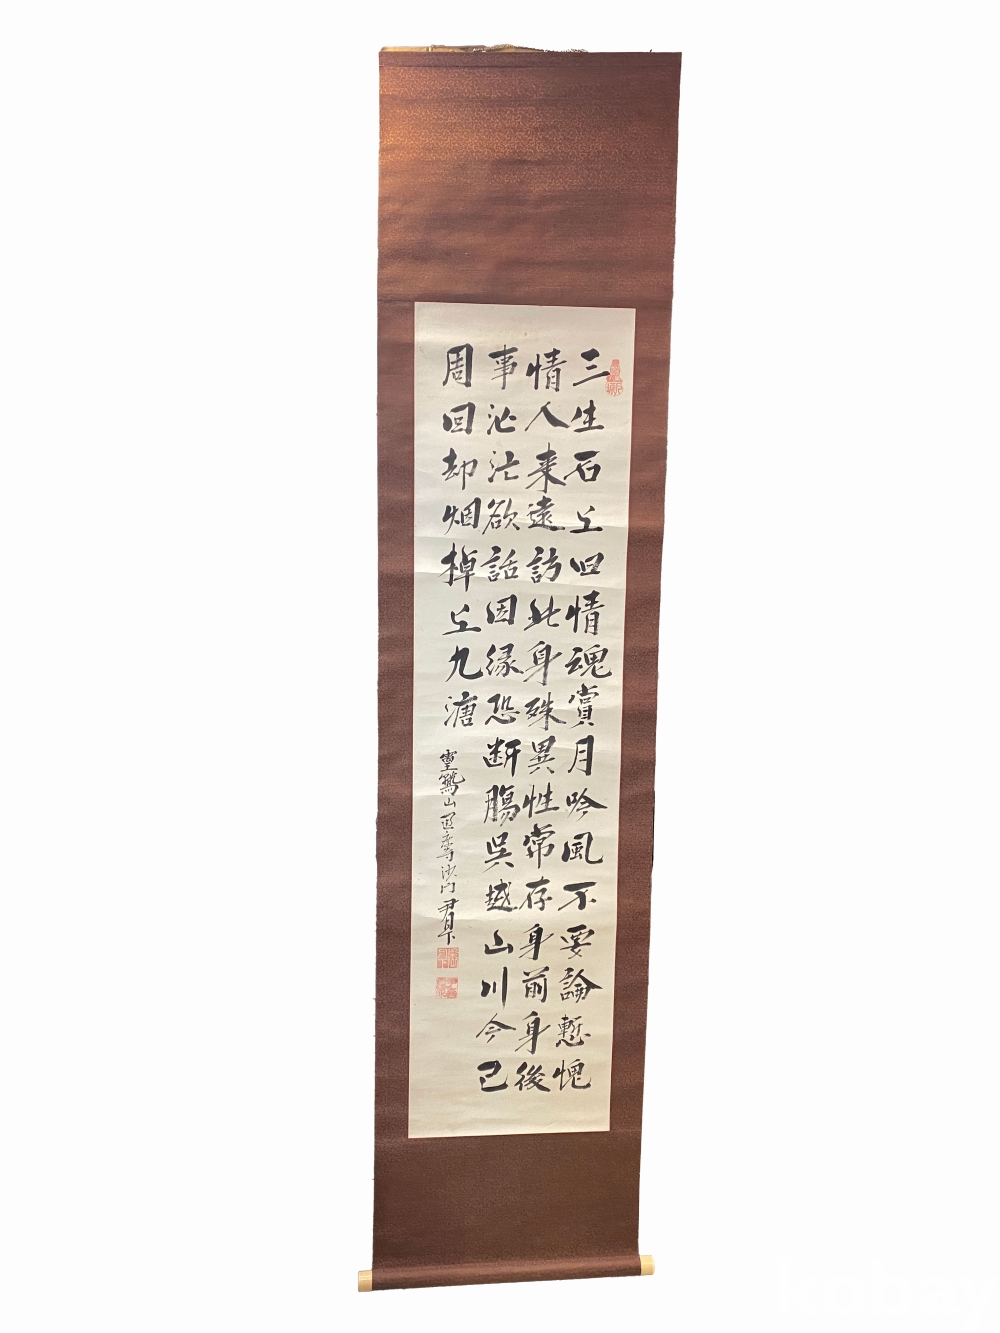 三生石上旧情魂賞月吟風不要論慙愧
情人来遠訪此身殊異性常存身前身後
事茫茫欲話因縁恐断腸呉越山川今已
周回却烟棹上九溏
霊鷲山 沙門
kobay